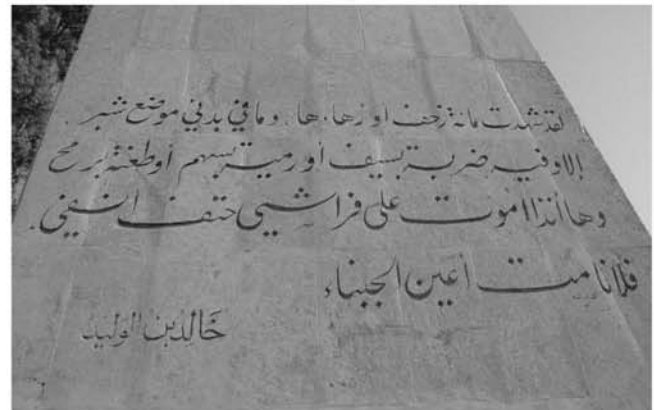 لقد شهدت مائة زحف او زهاءها. وما في بدني موضع شبر.
إلا وفيه ضربة بسيف أو رمية بسهم أو طعنة برمح
وها أنذا اموت على فراشي حتف انفي.
فلا نامت أعين الجبناء
خَالِد بن الوَليد